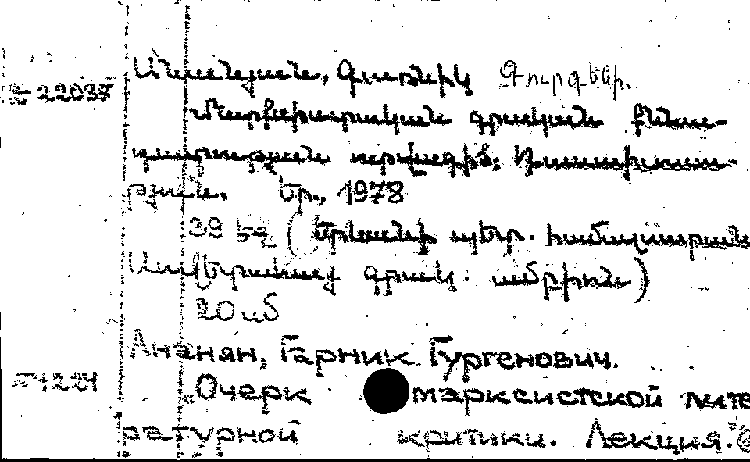 Անանյան, Գառնիկ Գուրգենի.
22037
Մարքսիստական գրական քննա-
դատության ուրվագիծ: Դասախոսու-
թյուն. Եր., 1978
39 էջ (Երևանի պետ. համալսարան
Սովետական գրակ. ամբիոն)
20 կ
Ананян, Гарник Гургенович.
Очерк марксистской лите
ратурной критики. Лекция.